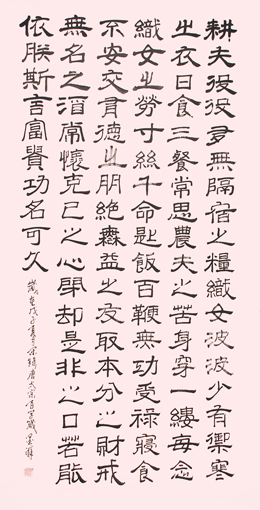 耕夫役役多無隔宿之糧織女波波少有禦寒
之衣日食三餐常思農夫之苦身穿一縷每念
織女之勞寸絲千命匙飯百鞭無功受祿寢食
不安交有德之朋絕無益之友取本分之財戒
無名之酒常懷克己之心閉却是非之口若能
依朕斯言富貴功名可久
歲在戊子唐太宗百字箴